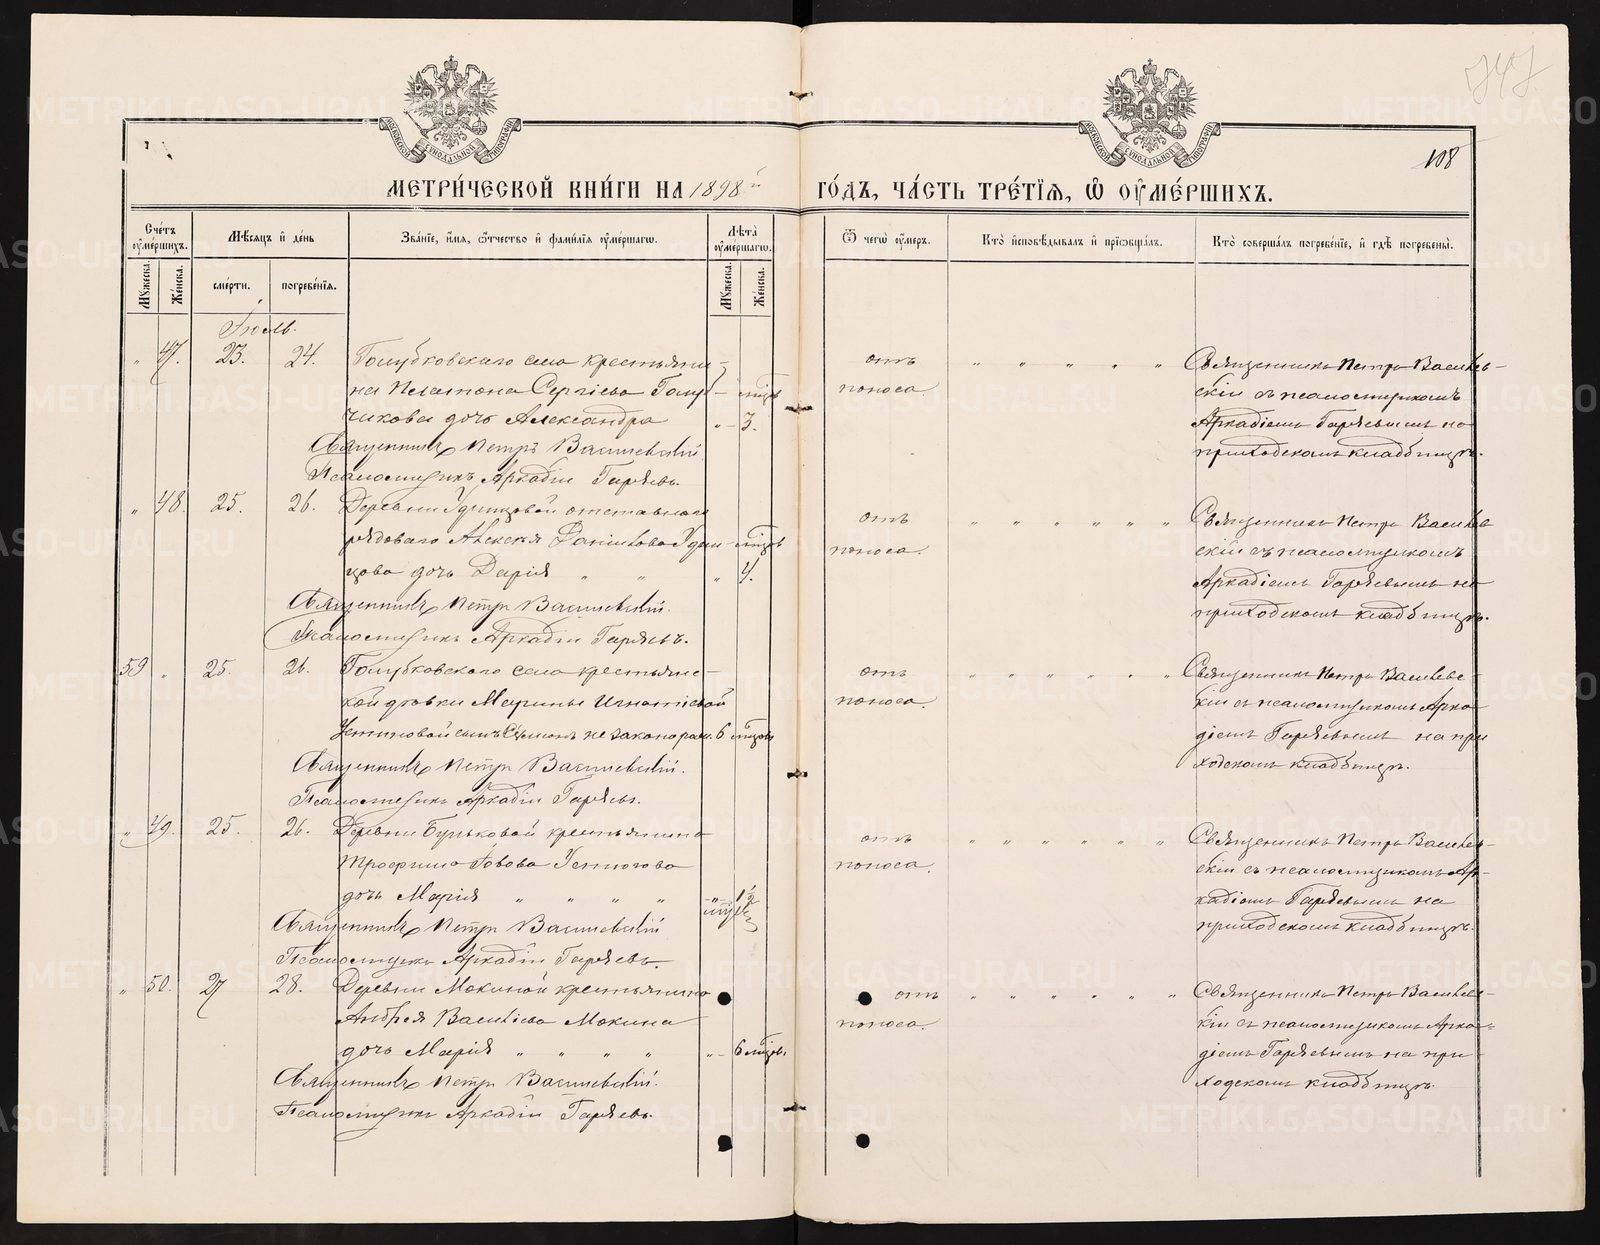 747.
108
МЕТРИ́ЧЕСКОЙ КНИ́ГИ НА 1898й ГО́ДЪ, ЧА́СТЬ ТРЕ́ТІѦ, Ѡ ОУМЕ́РШИХЪ.
Сче́тъ оуме́ршихъ.
Мужеска.
Же́нска.
Мѣсѧцъ и де́нь
сме́рти.
погребе́нїѧ.
Зва́нїе, и́мѧ, ѻ́тчество и фами́лїѧ оуме́ршагѡ.
Лѣта̀ оуме́ршагѡ.
Мужеска.
Же́нска.
Ѿ чегѡ̀ оу́меръ.
Кто̀ исповѣ́дывалъ и прїѡбща́лъ.
Кто̀ соверша́лъ погребе́нїе, и гдѣ̀ погребены̀.
Іюль.
" 47. 23. 24. Голубковскаго села крестьяни-
на Платона Сергіева Голу-
чикова дочь Александра " 3.
Священникъ Петръ Василевскій
Псаломщикъ Аркадій Гаряевъ.
отъ
поноса
Священникъ Петръ Василев-
скій съ псаломщикомъ
Аркадіемъ Гаряевымъ на
приходскомъ кладбищѣ.
" 48. 25. 26. Деревни Удинцовой отставнаго
рядоваго Алексѣя Данилова Удин-
цова дочь Дарія " " " 4.
Священникъ Петръ Василевскій.
Псаломщикъ Аркадій Гаряевъ.
отъ
поноса.
Священникъ Петръ Василев
скій съ псаломщикомъ
Аркадіемъ Гаряевымъ на
приходскомъ кладбищѣ.
59 " 25. 26. Голубковскаго села крестьянс-
кой дѣвки Марины Игнатіевой
Устиновой сынъ Симонъ незаконорож. 6 мѣсяц.
Священникъ Петръ Василевскій.
Псаломщикъ Аркадій Гаряевъ.
отъ
поноса
Священникъ Петръ Василевс-
кій съ псаломщикомъ Арка-
діемъ Гаряевымъ на при
ходскомъ кладбищѣ.
" 49. 25. 26. Деревни Буньковой крестьянина
Трофима Іовова Устюгова
дочь Марія " " " " " 1½
Священникъ Петръ Василевскій
Псаломщикъ Аркадій Гаряевъ.
отъ
поноса.
Священникъ Петръ Василев-
скій съ псаломщикомъ Ар-
кадіемъ Гаряевымъ на
приходскомъ кладбищѣ.
" 50. 27 28. Деревни Мокиной крестьянина
Андрея Василіева Мокина
дочь Марія " " " " " 6 мѣсяц.
Священникъ Петръ Василевскій.
Псаломщикъ Аркадій Гаряевъ.
отъ
поноса.
Священникъ Петръ Василевс-
кій съ псаломщикомъ Арка-
діемъ Гаряевымъ на при
ходскомъ кладбищѣ.
METRIKI.GASO-URAL.RU